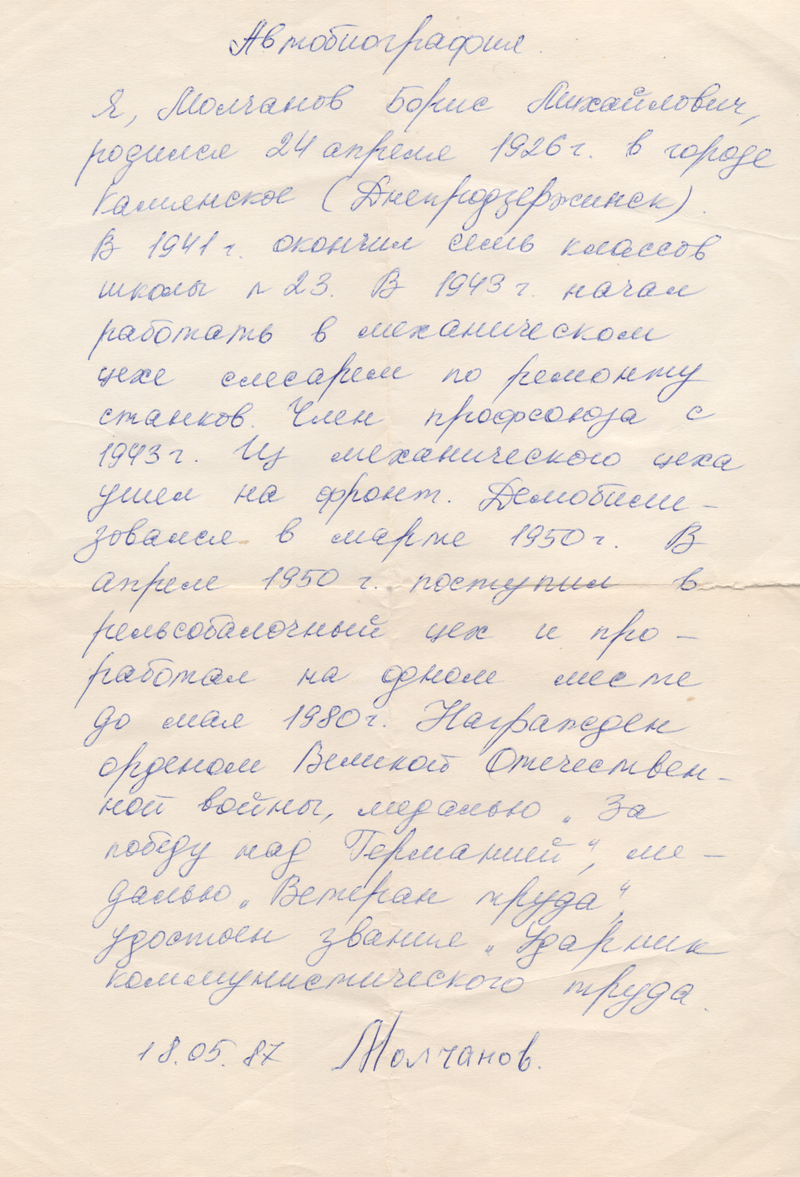 Автобиография.
Я, Молчанов Борис Михайлович,
родился 24 апреля 1926 г. в городе
Камянское (Днепродзержинск).
В 1941 г. окончил семь классов
школы n 23. В 1943 г. начал
работать в механическом
цехе слесарем по ремонту
станков. Член профсоюза с
1943 г. Из механического цеха
ушел на фронт. Демобили-
зовался в марте 1950 г. В
апреле 1950 г. поступил в
рельсобалочный цех и про-
работал на одном месте
до мая 1980 г. Награжден
орденом Великой Отечествен-
ной войны, медалью „За
победу над Германией“, ме-
далью „Ветеран труда“,
удостоен звания „Ударник
коммунистического труда.
18.05.87 Молчанов.